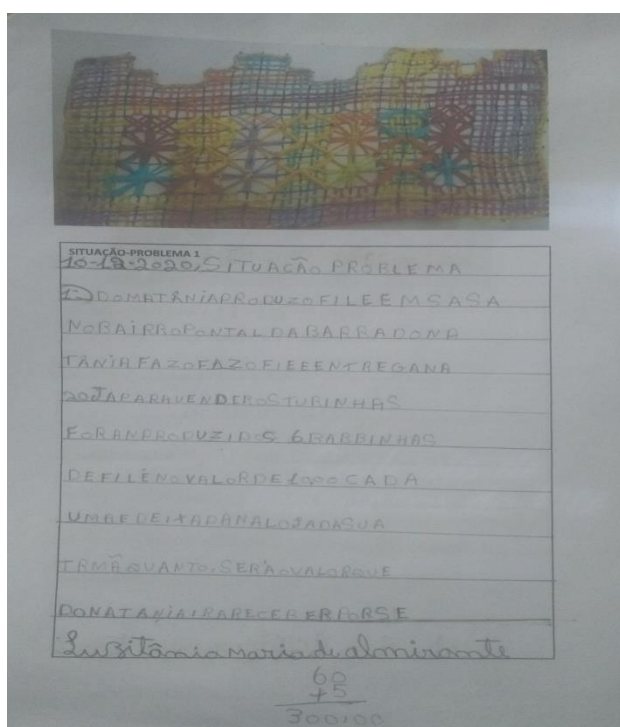 SITUAÇÃO-PROBLEMA 1
10-12-2020, SITUAÇÃO PROBLEMA
1º) DOMATÂNIAPRODUZOFILEEMSASA
NOBAIRROPONTALDABARRADONA
TÂNIAFAZOFAZOFILEEENTREGANA
PARAVENDER
FORANPRODUZIDOS 6
DEFILÉNOVALORDE CADA
UMAEDEITADANALOJADASUA
IRMÃQUANTO,SERÁOVALORQUE
DONATANIAIRARECEBERPORSE
Luzitânia Maria de almirante
60
+5
300,00